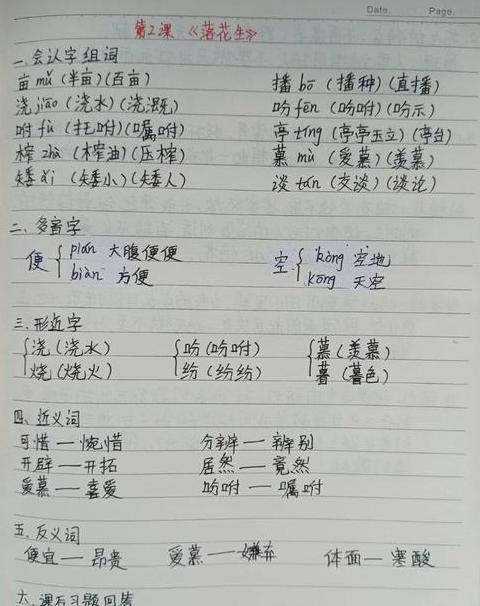 Date.   Page.
第2课 《落花生》
一、会认字组词
亩 mǔ (半亩)(百亩)   播 bō (播种)(直播)
浇 jiāo (浇水)(浇溉)   吩 fēn (吩咐)(吩示)
咐 fù (托咐)(嘱咐)   亭 tíng (亭亭玉立)(亭台)
榨 zhà (榨油)(压榨)   慕 mù (爱慕)(羡慕)
矮 ǎi (矮小)(矮人)   谈 tán (交谈)(谈论)
二、多音字
便 { pián 大腹便便   空 { kòng 空地
biàn 方便   kōng 天空
三、形近字
{浇 (浇水)   {吩 (吩咐)   {慕 (羡慕)
烧 (烧火)   纷 (纷纷)   暮 (暮色)
四、近义词
可惜 — 惋惜   分辨 — 辨别
开辟 — 开拓   居然 — 竟然
爱慕 — 喜爱   吩咐 — 嘱咐
五、反义词
便宜 — 昂贵   爱慕 — 嫌弃   体面 — 寒酸
六、课后习题回答